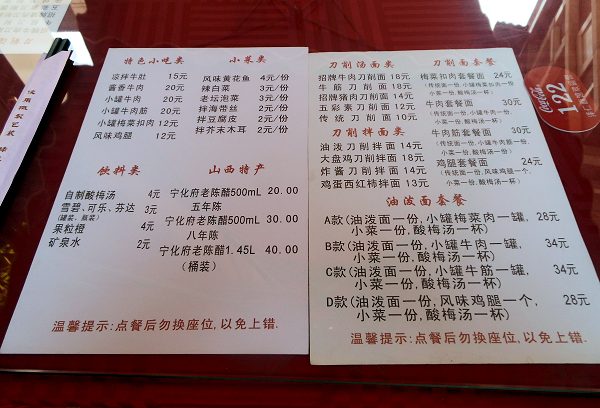 特色小吃类
凉拌牛肚 15元
酱香牛肉 20元
小罐牛肉 20元
小罐牛肉筋 20元
小罐梅菜扣肉 12元
风味鸡腿 12元
小菜类
风味黄花鱼 4元/份
辣白菜 3元/份
老坛泡菜 3元/份
拌海带丝 2元/份
拌豆腐皮 2元/份
拌芥末木耳 2元/份
饮料类
自制酸梅汤 4元
雪碧、可乐、芬达 3元
(罐装、瓶装)
果粒橙 4元
矿泉水 2元
山西特产
宁化府老陈醋500mL 20.00
五年陈
宁化府老陈醋500mL 30.00
八年陈
宁化府老陈醋1.45L 40.00
（桶装）
温馨提示:点餐后勿换座位,以免上错.
刀削汤面类
招牌牛肉刀削面 18元
牛筋刀削面 18元
招牌猪肉刀削面 14元
五彩素刀削面 12元
传统刀削面 10元
刀削拌面类
油泼刀削拌面 14元
大盘鸡刀削拌面 18元
炸酱刀削拌面 14元
鸡蛋西红柿拌面 13元
刀削面套餐
梅菜扣肉套餐面 24元
(传统面一份,小罐梅菜扣肉一份
小菜一份,酸梅汤一杯)
牛肉套餐面 30元
(传统面一份,小罐牛肉一份,
小菜一份,酸梅汤一杯)
牛肉筋套餐面 30元
(传统面一份,小罐牛肉筋一份,
小菜一份,酸梅汤一杯)
鸡腿套餐面 24元
(传统面一份,风味鸡腿一份,
小菜一份,酸梅汤一杯)
油泼面套餐
A款(油泼面一份,小罐梅菜肉一罐, 28元
小菜一份,酸梅汤一杯)
B款(油泼面一份,小罐牛肉一罐, 34元
小菜一份,酸梅汤一杯)
C款(油泼面一份,小罐牛筋一罐, 34元
小菜一份,酸梅汤一杯)
D款(油泼面一份,风味鸡腿一个, 28元
小菜一份,酸梅汤一杯)
温馨提示:点餐后勿换座位,以免上错.
Coca-Cola
122